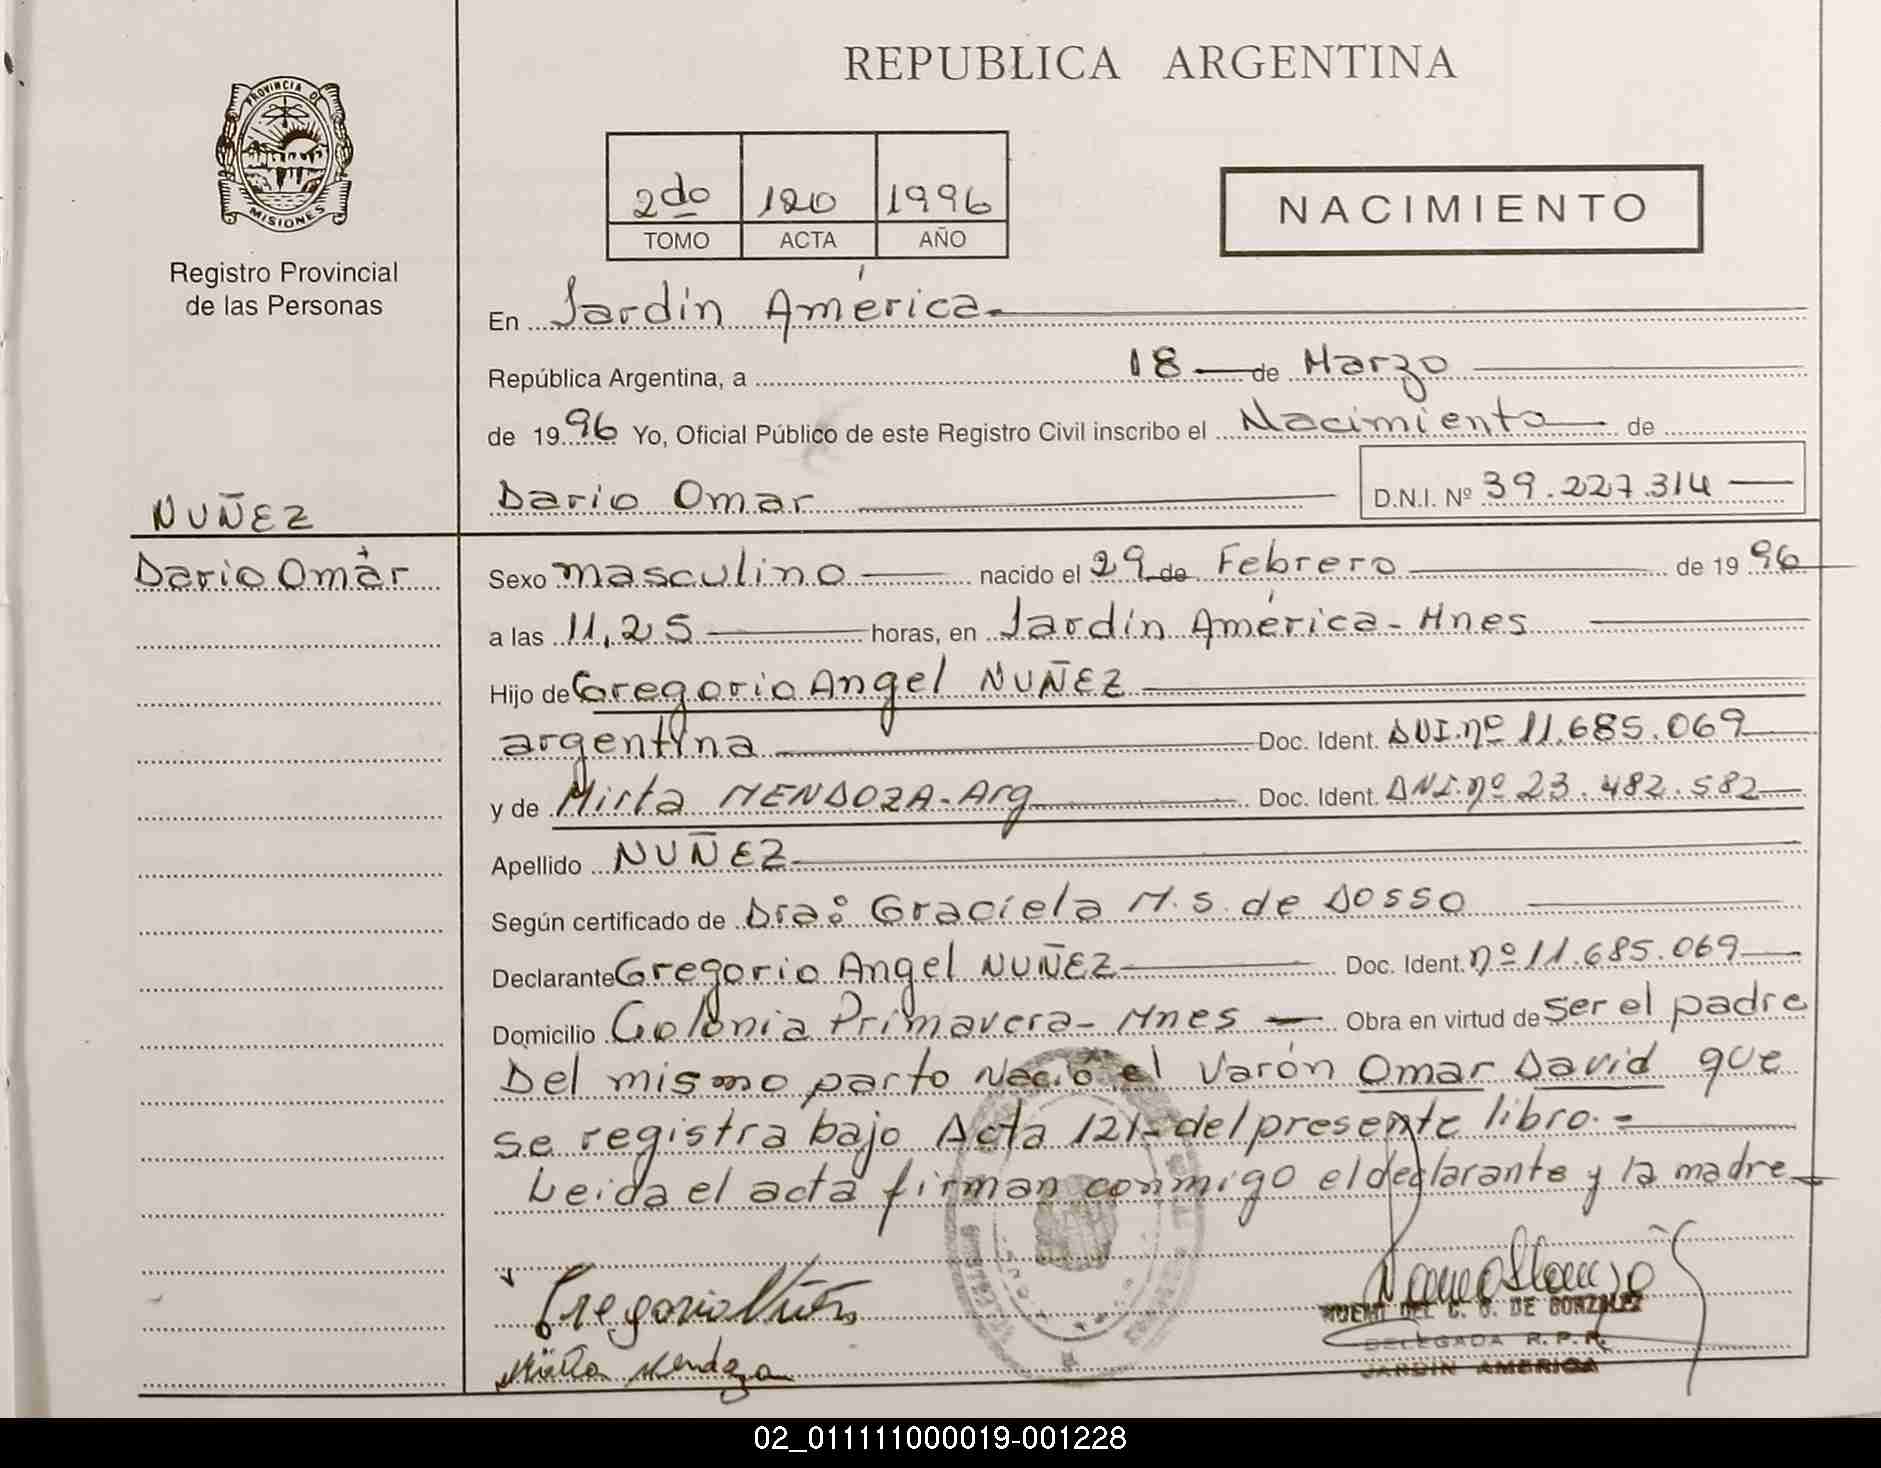 REPUBLICA ARGENTINA
PROVINCIA DE
MISIONES
Registro Provincial
de las Personas
2do 120 1996
TOMO ACTA AÑO
NACIMIENTO
En Jardín América
República Argentina, a 18 de Marzo
de 1996 Yo, Oficial Público de este Registro Civil inscribo el Nacimiento de
Dario Omar D.N.I. Nº 39.227.314
NUÑEZ
Dario Omar
Sexo masculino nacido el 29 de Febrero de 1996
a las 11,25 horas, en Jardín América - Mnes
Hijo de Gregorio Angel NUÑEZ
argentina Doc. Ident. DNI.nº 11.685.069
y de Mirta MENDOZA - Arg Doc. Ident. DNI.nº 23.482.582
Apellido NUÑEZ
Según certificado de Dra: Graciela M.S. de Dosso
Declarante Gregorio Angel NUÑEZ Doc. Ident. nº 11.685.069
Domicilio Colonia Primavera - Mnes Obra en virtud de ser el padre
Del mismo parto Nació el Varón Omar David que
se registra bajo Acta 121- del presente libro.-
Leida el acta firman conmigo el declarante y la madre
Gregorio Núñez
Mirta Mendoza
NOEMI DEL C. G. DE GONZALEZ
DELEGADA R.P.P.
JARDIN AMERICA
02_011111000019-001228